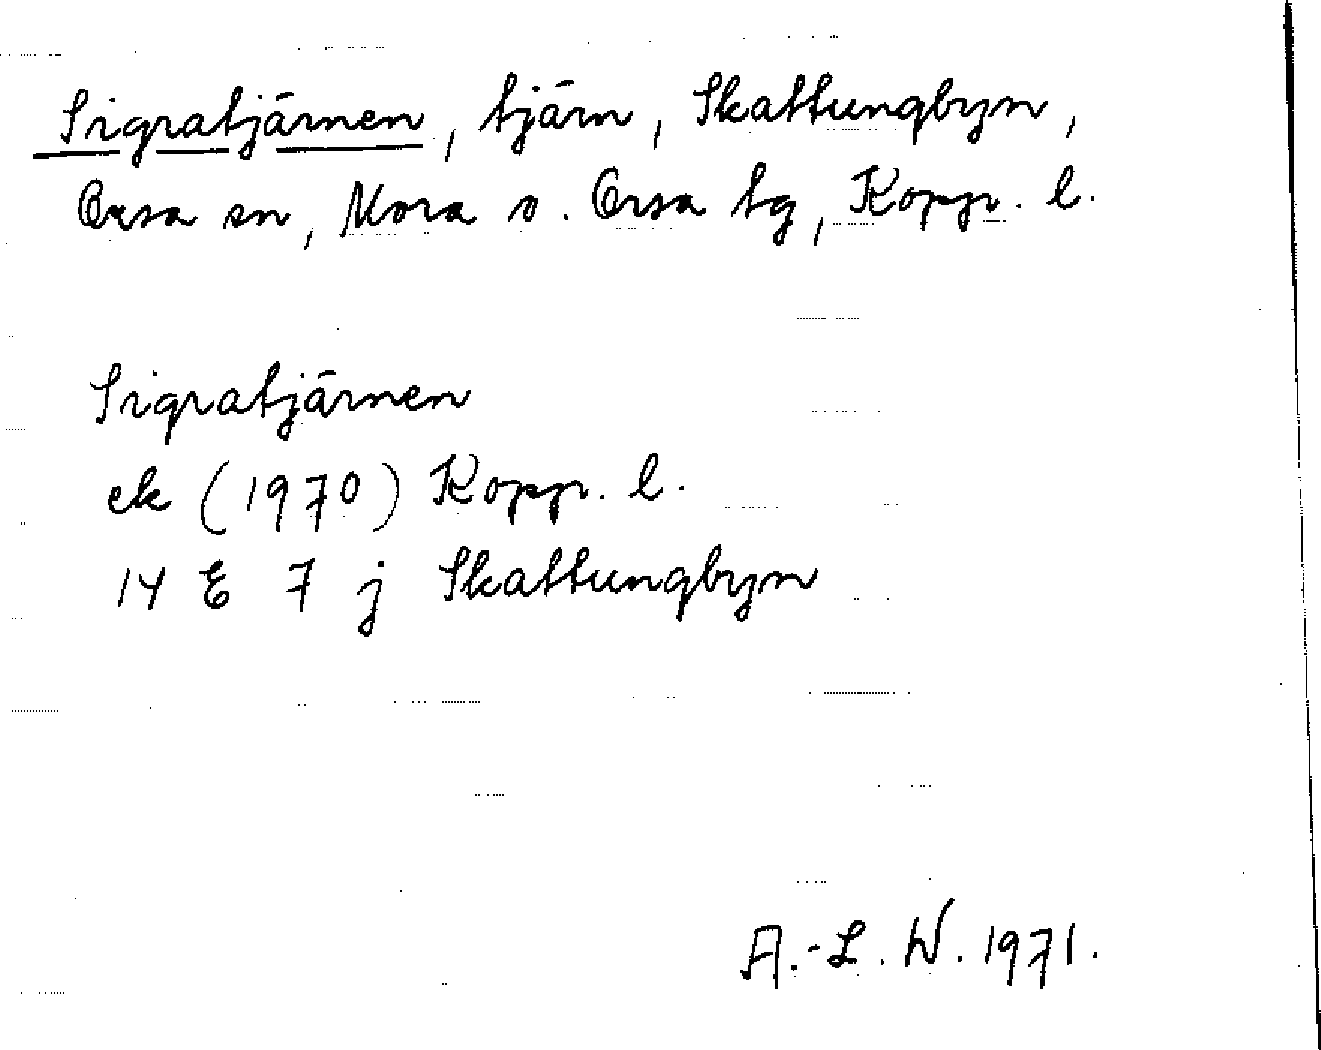 Sigratjärnen, tjärn, Skattungbyn,
Orsa sn, Mora o. Orsa tg, Kopp. l.
Sigratjärnen
ek (1970) Kopp. l.
14 E 7 j Skattungbyn
A.-L. W. 1971.